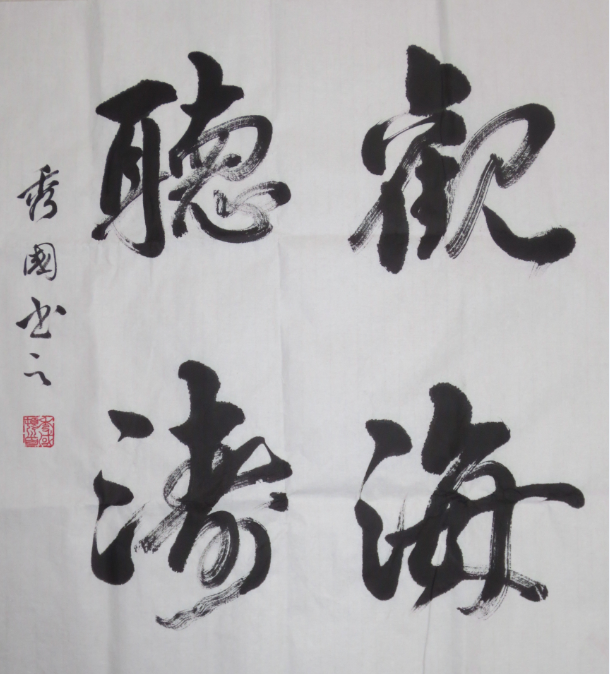 觀海
聽濤
秀國书之